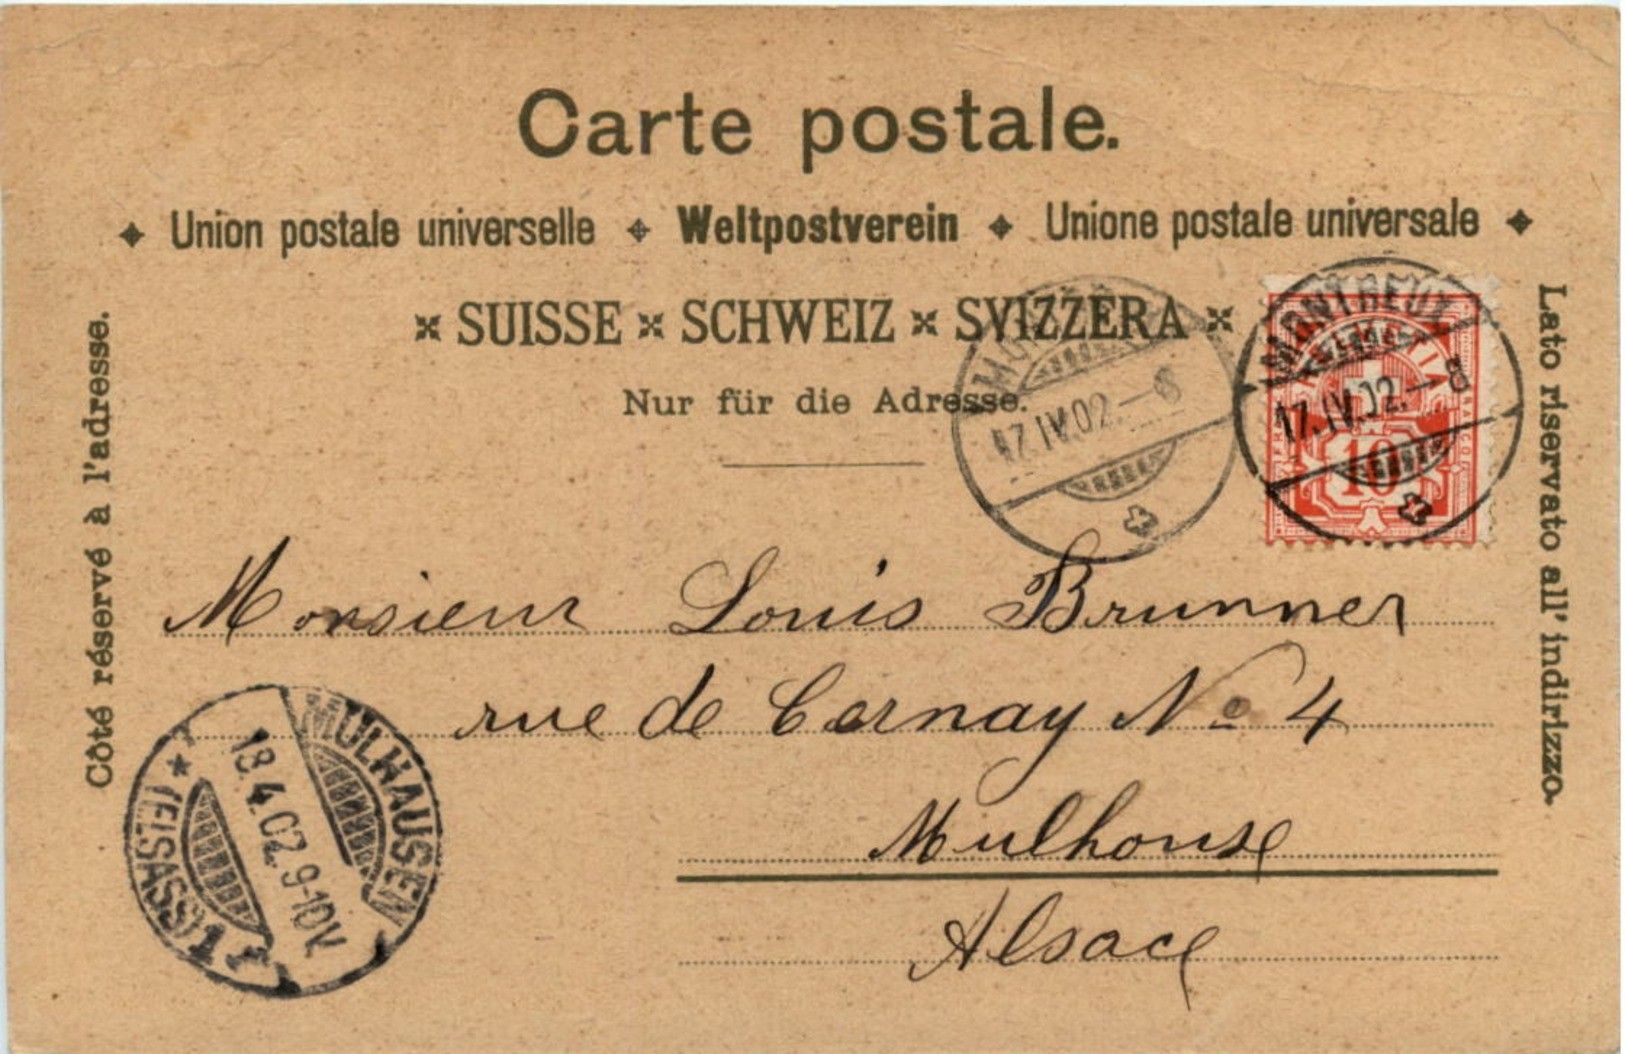 Carte postale.
Union postale universelle Weltpostverein Unione postale universale
SUISSE SCHWEIZ SVIZZERA
Nur für die Adresse.
Côté réservé à l'adresse.
Lato riservato all' indirizzo.
17.IV.02.–8
MONTREUX
17.IV.02.–8
10
Monsieur Louis Brunner
rue de Cernay No 4
Mulhouse
Alsace
MÜLHAUSEN
18.4.02.9-10V.
(ELSASS) 1